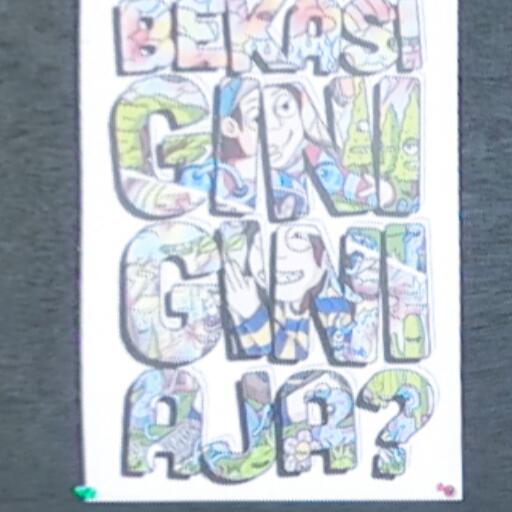 BEKASI
GINI
GINI
AJA?